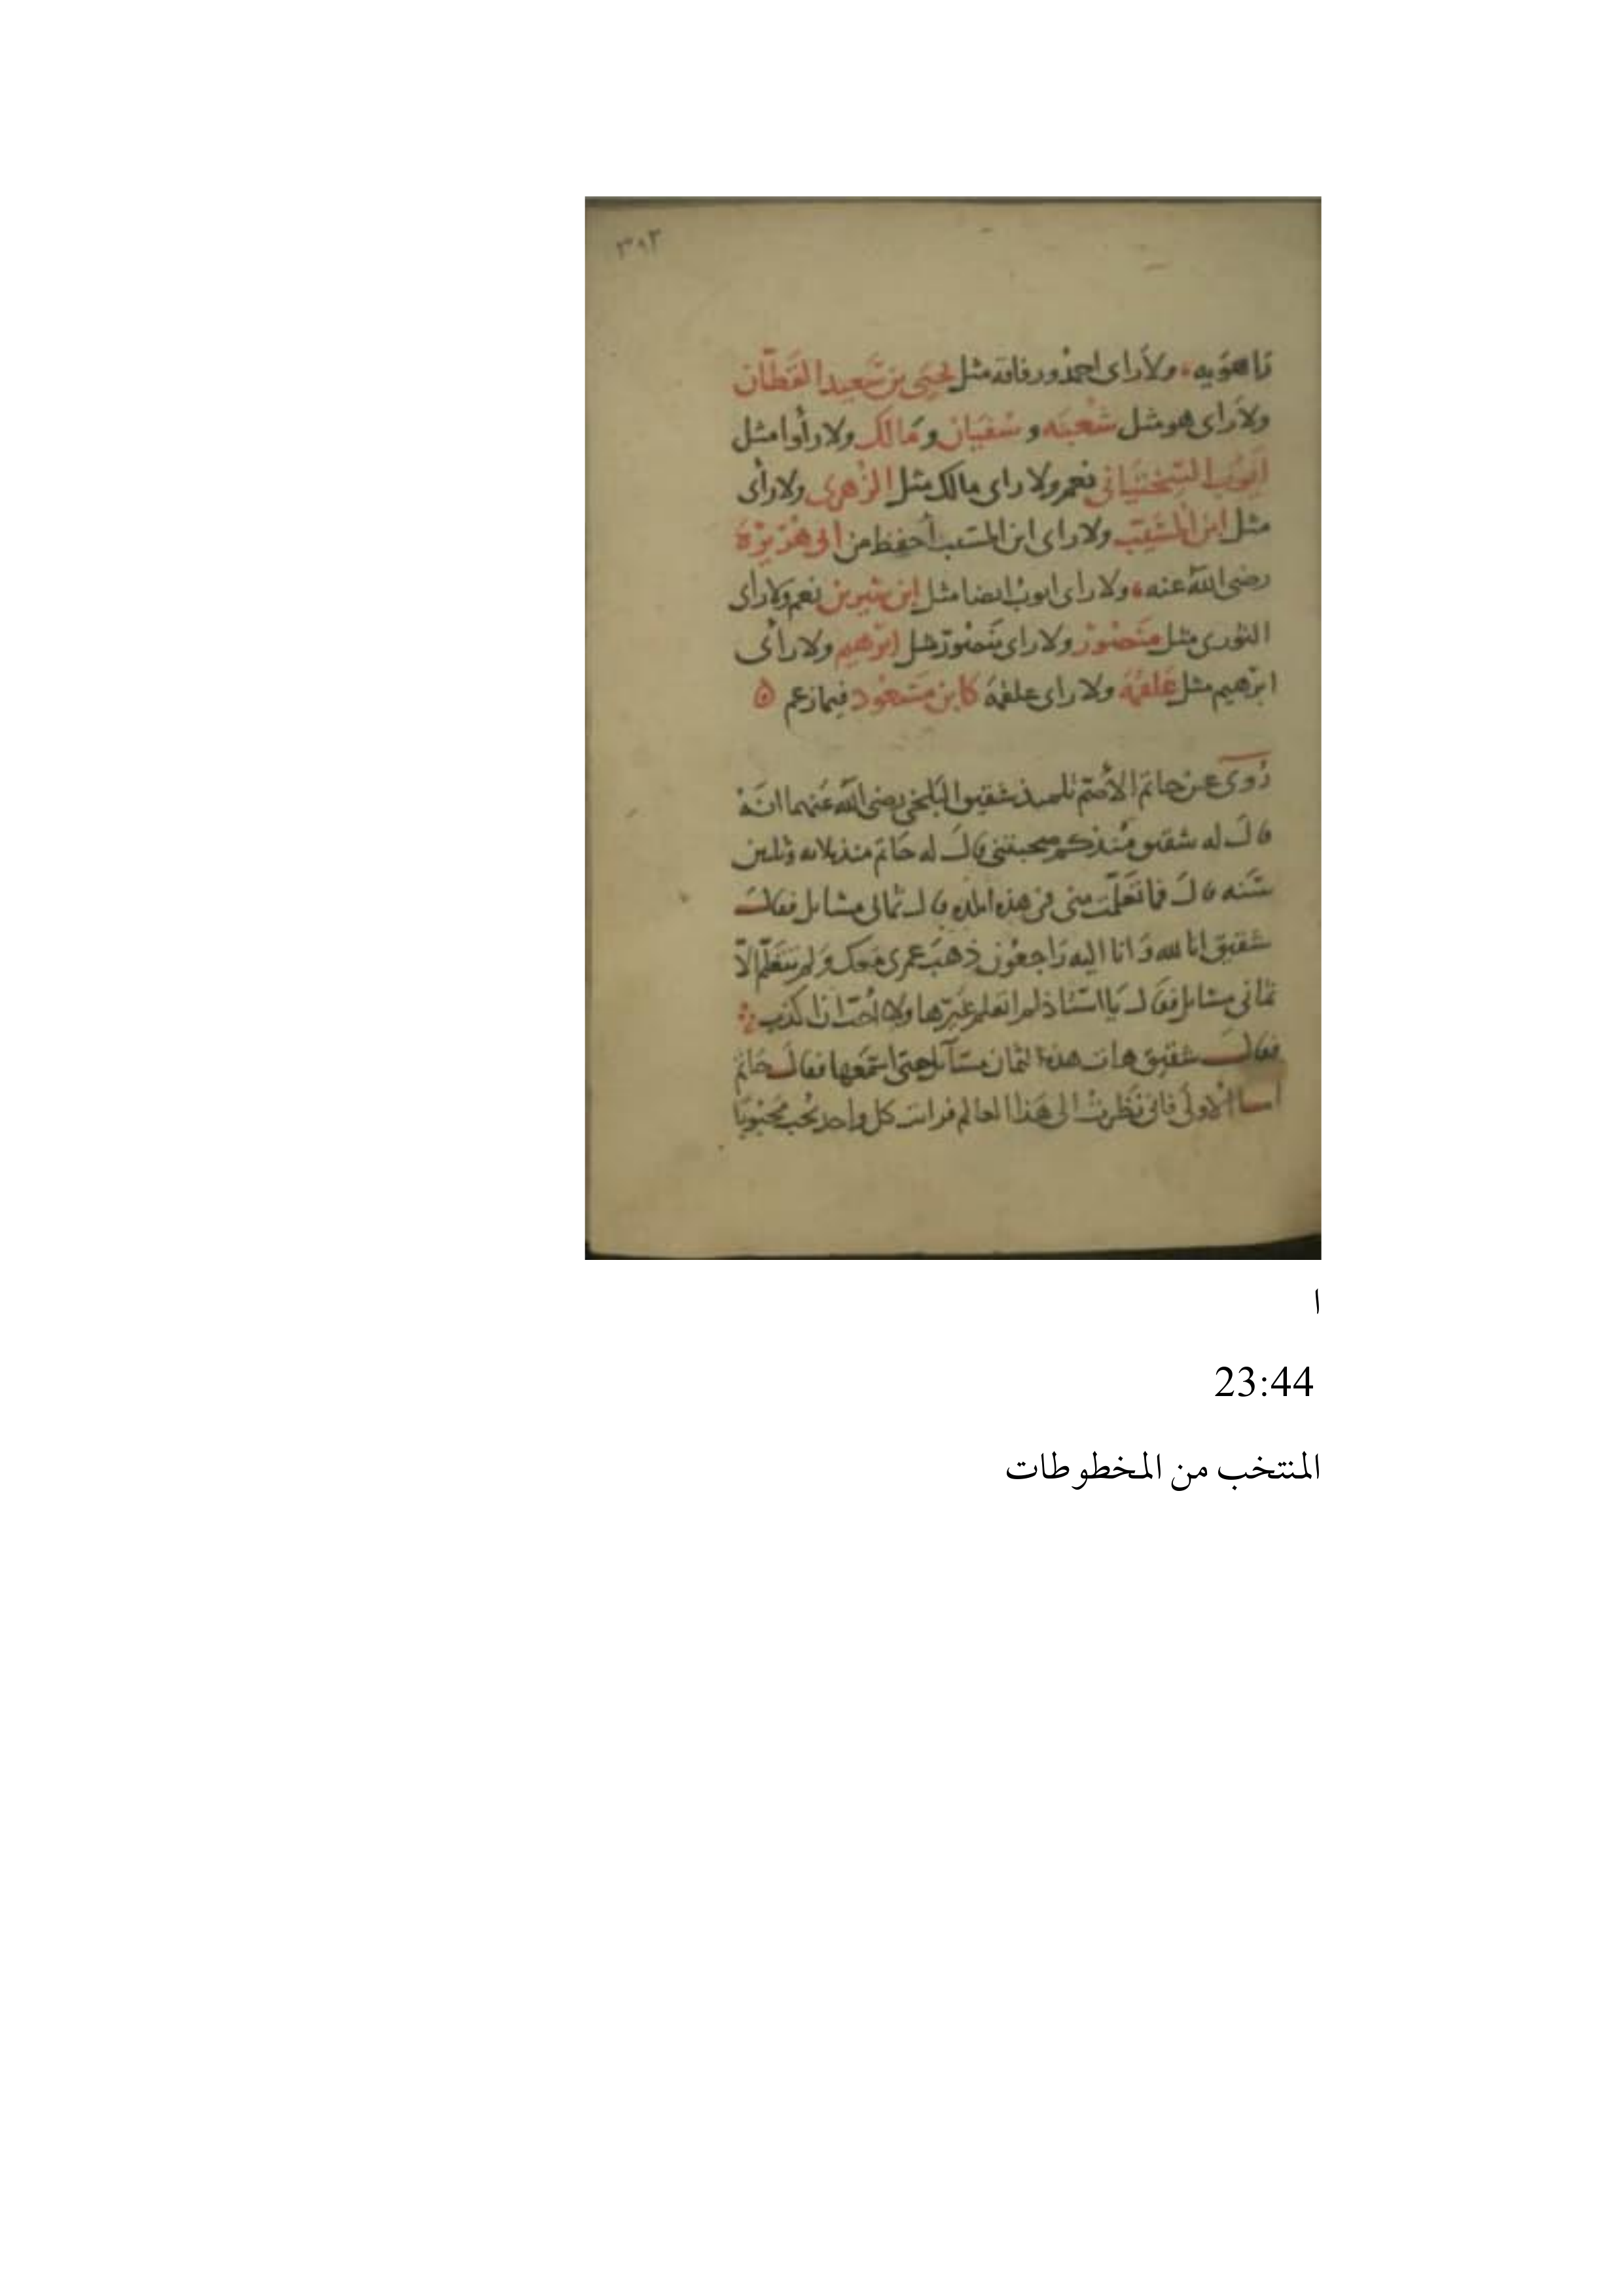 ٣٩٣
راهويه ولا راى احمد ورفاقه مثل يحيى بن سَعيد القَطّان
ولا راى هو مثل شعبَه و سُفيان و مَالك ولا رأوا مثل
ايوب السختياني نعم ولا راى مالك مثل الزهرى ولا رأى
مثل ابن المسَيّب ولا راى ابن المسَيب أحفظ من ابى هُرَيْرة
رضى الله عنه ولا راى ايوب ايضا مثل ابن سيرين نعم ولا راى
الثورى مثل منصُور ولا راى منصور مثل ابرهيم ولا رأى
ابرهيم مثل علقمَة ولا راى علقمة كابن مَسعُود فيما زعم ه
رُوى عن حاتم الأصَمّ تلميذ شقيق البَلخى رضى الله عَنهما انهُ
قالَ له شقيق مُنذ كم صحبتنى قالَ له حَاتم منذ ثلاثه وثلثين
سَنه قالَ فما تعَلّمت منى فى هذه المده قال ثمانى مسَايل فقالَ
شقيق انا لله وَانا اليه رَاجعُون ذهَبَ عمرى مَعك وَلم تتعَلّم الاّ
ثمانى مسَايل فقال يَا استَاذ لم اتعلم غَيرها ولا اُحبّ ان اكذب
فقالَ شقيق هات هذه الثمان مسَآيل حتى استمعها فقالَ حَاتم
أما الاُولَى فانى نَظَرتُ الى هَذا العالم فرايت كل واحد يُحب مَحْبُوبًا
ا
23:44
المنتخب من المخطوطات